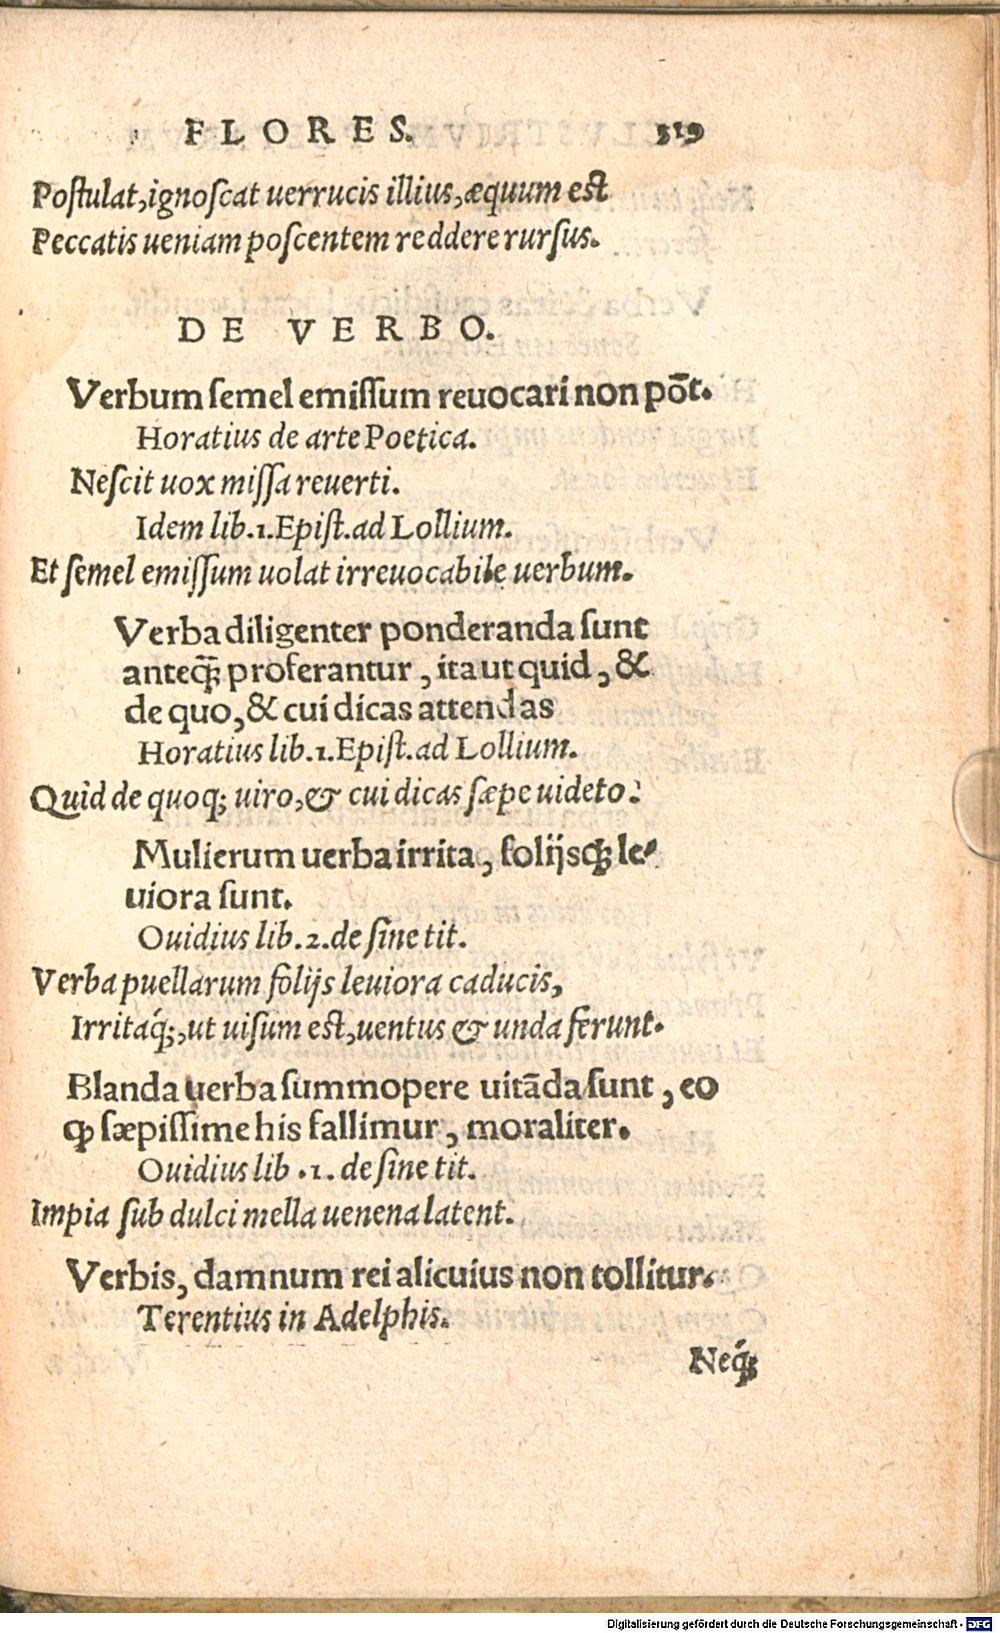 FLORES. 319
Postulat, ignoscat uerrucis illius, æquum est
Peccatis ueniam poscentem reddere rursus.
DE VERBO.
Verbum semel emissum reuocari non põt.
Horatius de arte Poetica.
Nescit uox missa reuerti.
Idem lib.1.Epist.ad Lollium.
Et semel emissum uolat irreuocabile uerbum.
Verba diligenter ponderanda sunt
anteq̃ꝫ proferantur, ita ut quid, &
de quo, & cui dicas attendas
Horatius lib.1.Epist.ad Lollium.
Quid de quoqꝫ uiro, & cui dicas sæpe uideto:
Mulierum uerba irrita, folijsq́ꝫ le-
uiora sunt.
Ouidius lib.2.de sine tit.
Verba puellarum folijs leuiora caducis,
Irritaq́ꝫ, ut uisum est, uentus & unda ferunt.
Blanda uerba summopere uitãda sunt, eo
ꝙ sæpissime his fallimur, moraliter.
Ouidius lib.1.de sine tit.
Impia sub dulci mella uenena latent.
Verbis, damnum rei alicuius non tollitur.
Terentius in Adelphis.
Neq́ꝫ
Digitalisierung gefördert durch die Deutsche Forschungsgemeinschaft - DFG